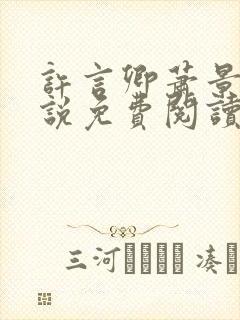 許言卿蕭景
說免費閱讀
三河 凑